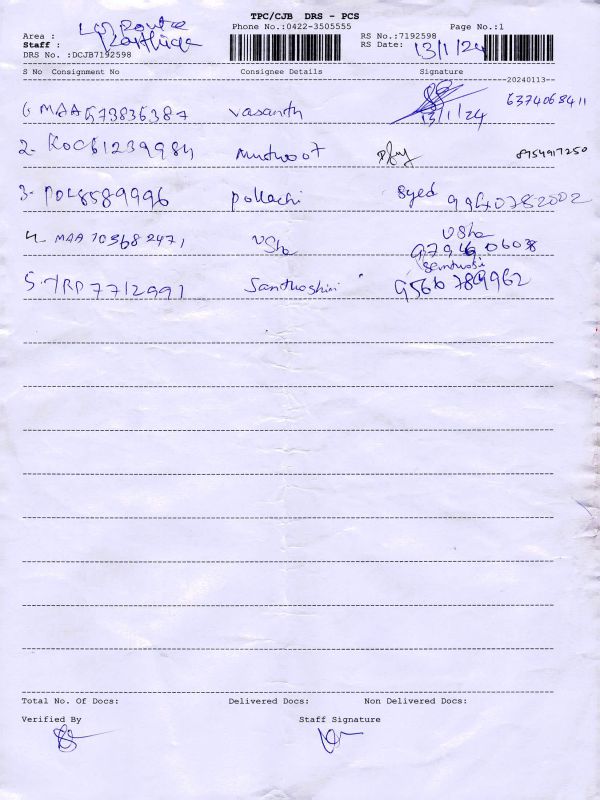 TPC/CJB DRS - PCS
Area : Route Phone No.:0422-3505555 RS No.:7192598 Page No.:1
Staff : Karthiga RS Date: 13/1/24
DRS No. :DCJB7192598
S No Consignment No Consignee Details: Signature
20240113
1. MAA573836387 Vasanth 13/1/24 6374068411
2. KOC61239984 Muthoot 8754917250
3. POL8589996 Pollachi Syed 9940782002
4. MAA703682471 Usha Usha 9794606038
5. TRP7712991 Santhoshini Santhosi 9566789962
Total No. Of Docs: Delivered Docs: Non Delivered Docs:
Verified By Staff Signature